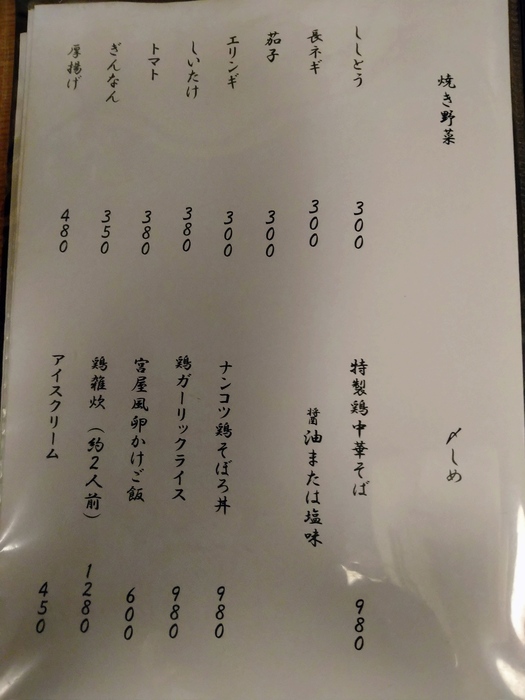 焼き野菜
ししとう 300
長ネギ 300
茄子 300
エリンギ 300
しいたけ 380
トマト 380
ぎんなん 350
厚揚げ 480
〆しめ
特製鶏中華そば 980
醤油または塩味
ナンコツ鶏そぼろ丼 980
鶏ガーリックライス 980
宮屋風卵かけご飯 600
鶏雑炊（約2人前） 1280
アイスクリーム 450